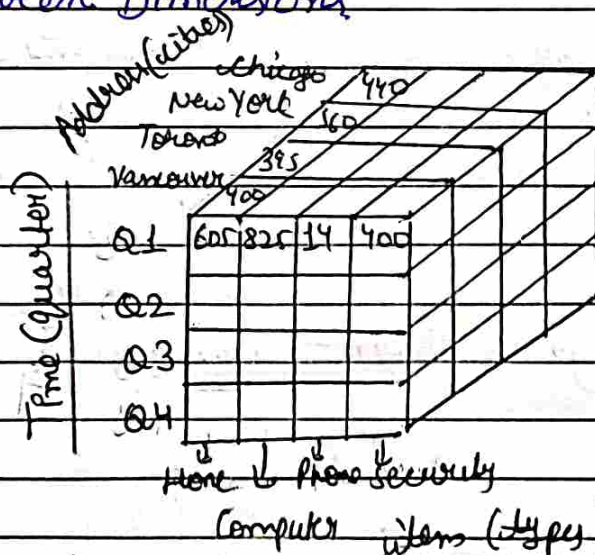 Dimensions
Address (cities)
Chicago
440
New York
560
Toronto
395
Vancouver
400
Time (quarter)
Q1 605 825 14 400
Q2
Q3
Q4
Home Phone Security
Computer items (types